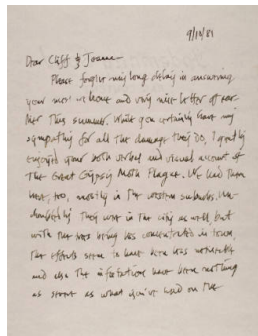 9/13/81
Dear Cliff & Joanne—
Please forgive my long delay in answering
your most and very nice letter of ear-
lier this summer. While you certainly have my
sympathy for all the damage they do, I greatly
enjoyed your both verbal and visual account of
The Great Gypsy Moth Plague. We had them
here, too, mostly in the western suburbs. Un-
doubtedly they were in the city as well but
with the trees being less concentrated in town,
the effects seem to have been less noticeable
and also the infestations have been nothing
as severe as what you've had on the